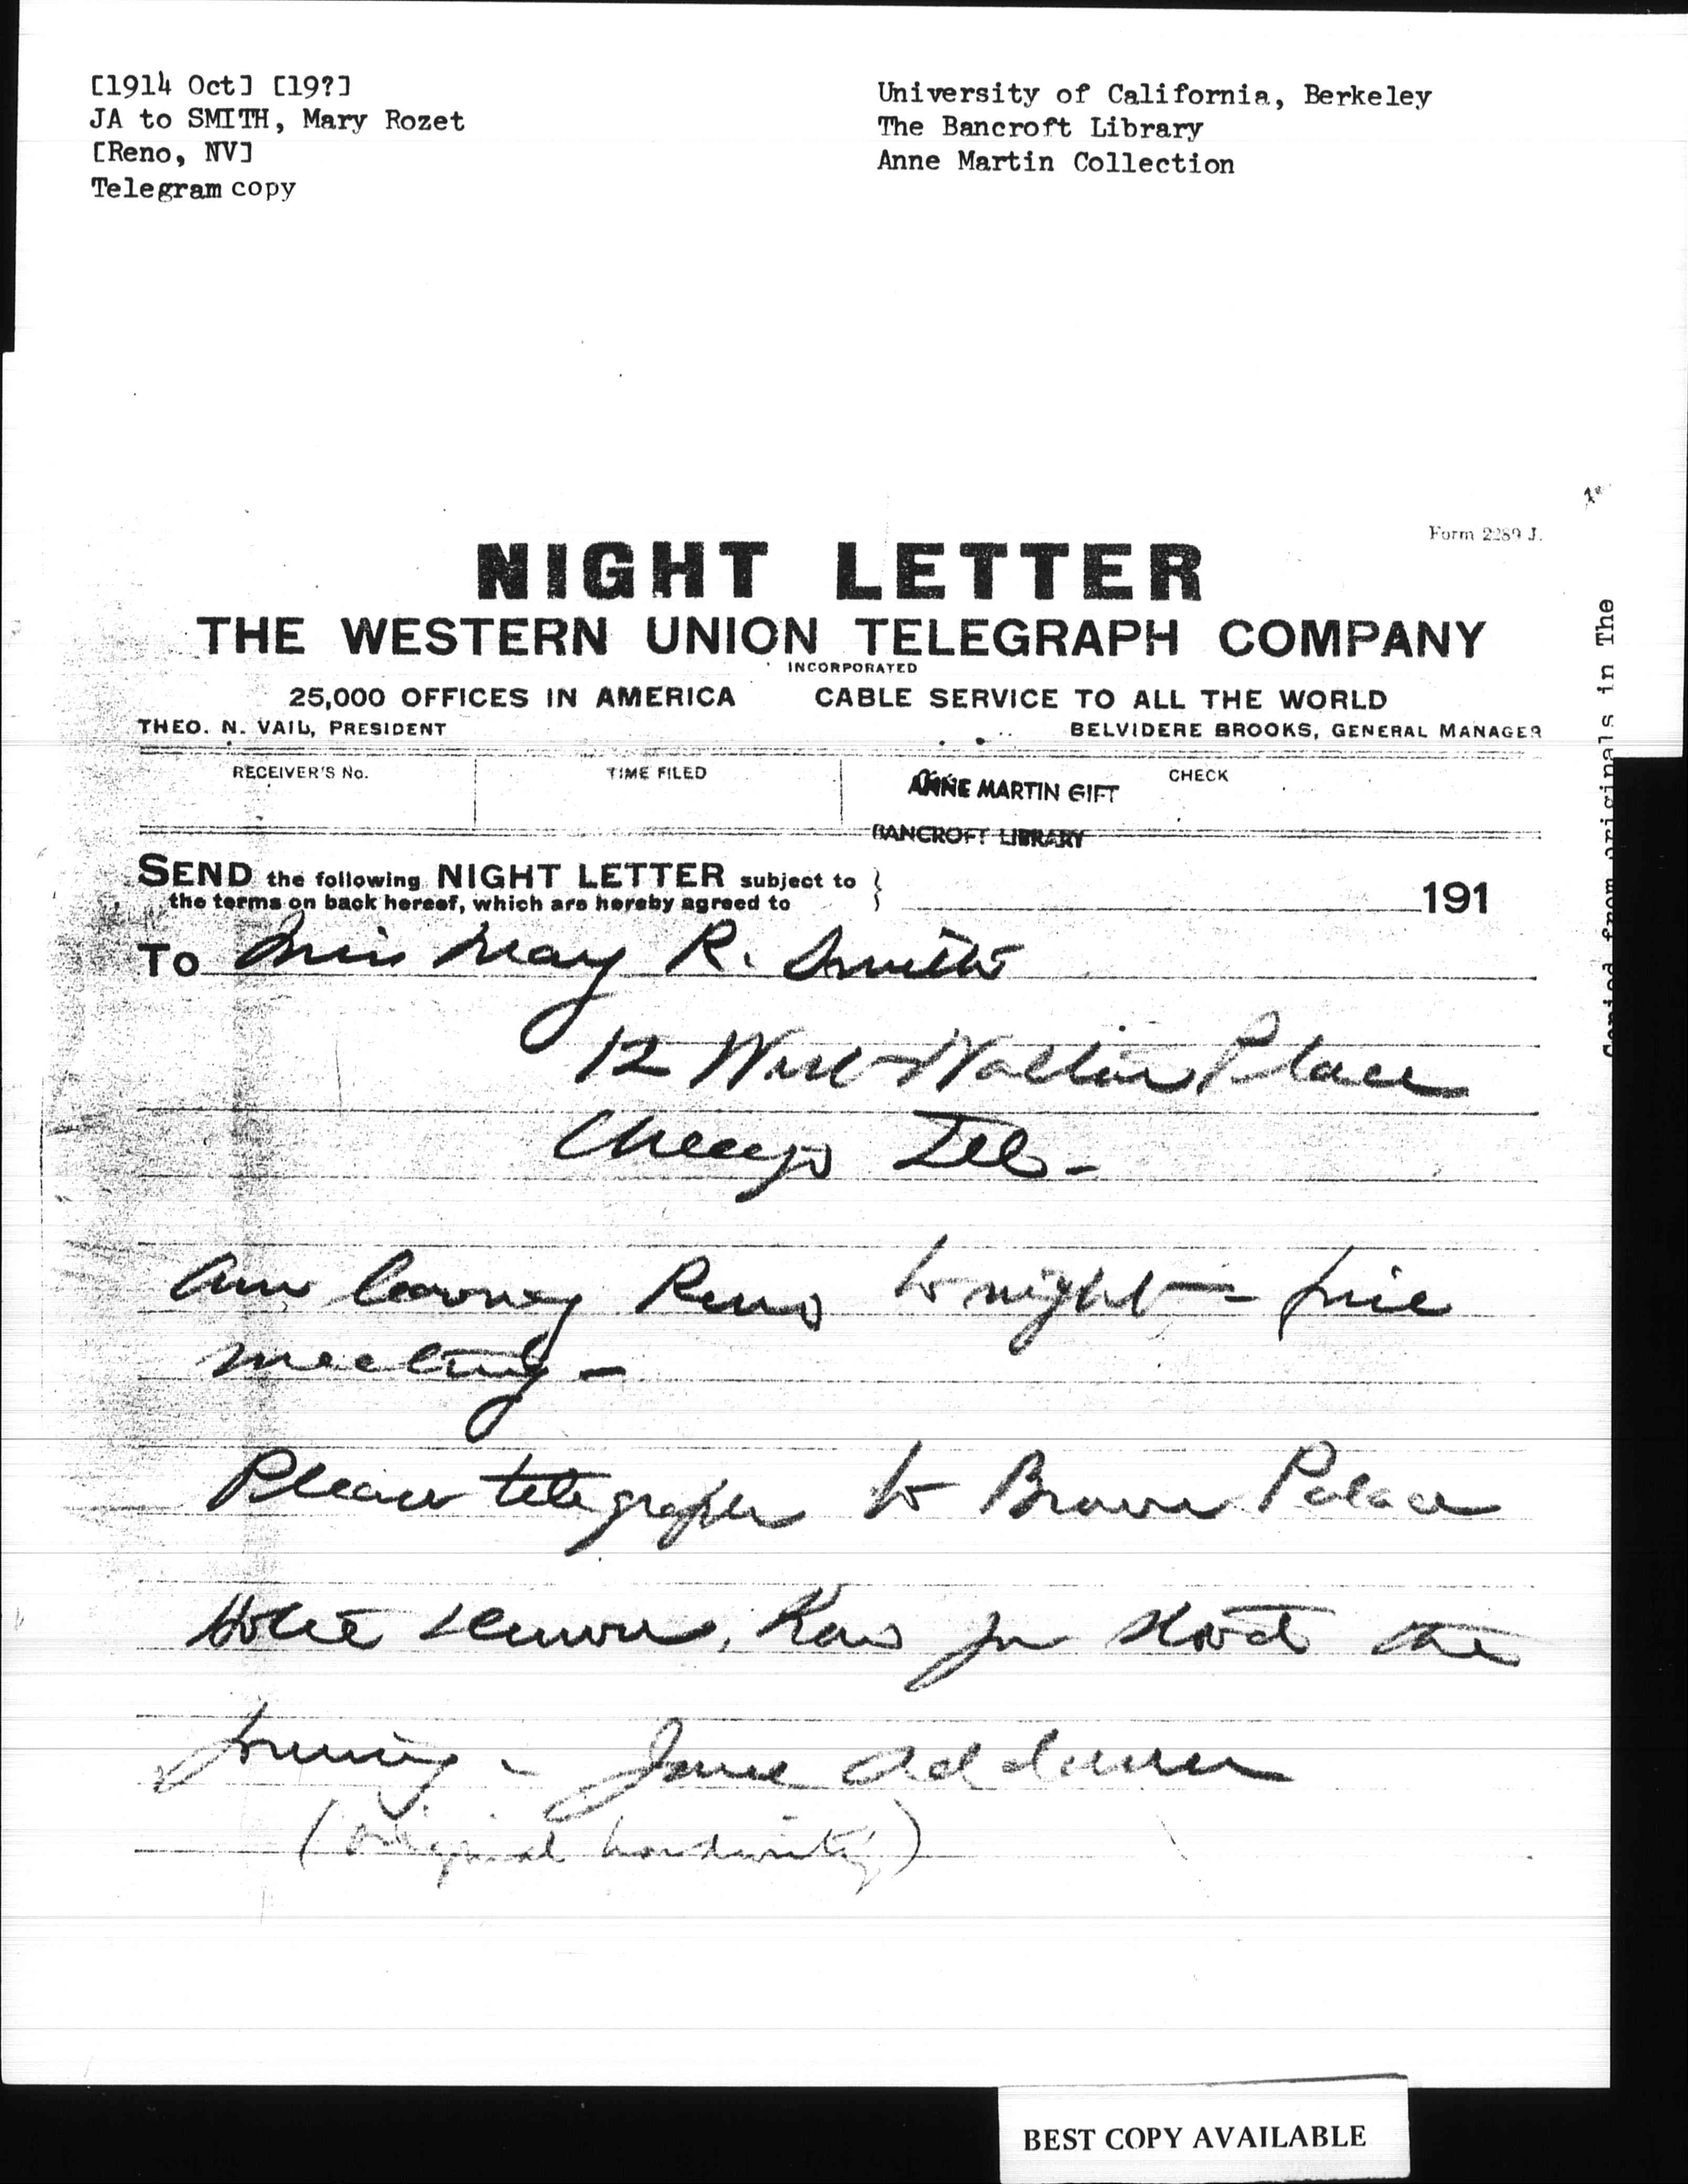 [1914 Oct] [19?]
JA to SMITH, Mary Rozet
[Reno, NV]
Telegram copy
University of California, Berkeley
The Bancroft Library
Anne Martin Collection
Form 2289 J.
NIGHT LETTER
THE WESTERN UNION TELEGRAPH COMPANY
INCORPORATED
25,000 OFFICES IN AMERICA CABLE SERVICE TO ALL THE WORLD
THEO. N. VAIL, PRESIDENT BELVIDERE BROOKS, GENERAL MANAGER
RECEIVER'S No. TIME FILED CHECK
ANNE MARTIN GIFT
BANCROFT LIBRARY
SEND the following NIGHT LETTER subject to
the terms on back hereof, which are hereby agreed to
191
To Miss Mary R. Smith
12 West Walton Place
Chicago Ill-
Am leaving Reno to night - fine
meeting -
Please telegraph to Brown Palace
Hotel Denver, How you stood the
journey - Jane Addams
(Original handwriting)
Copied from originals in The
BEST COPY AVAILABLE